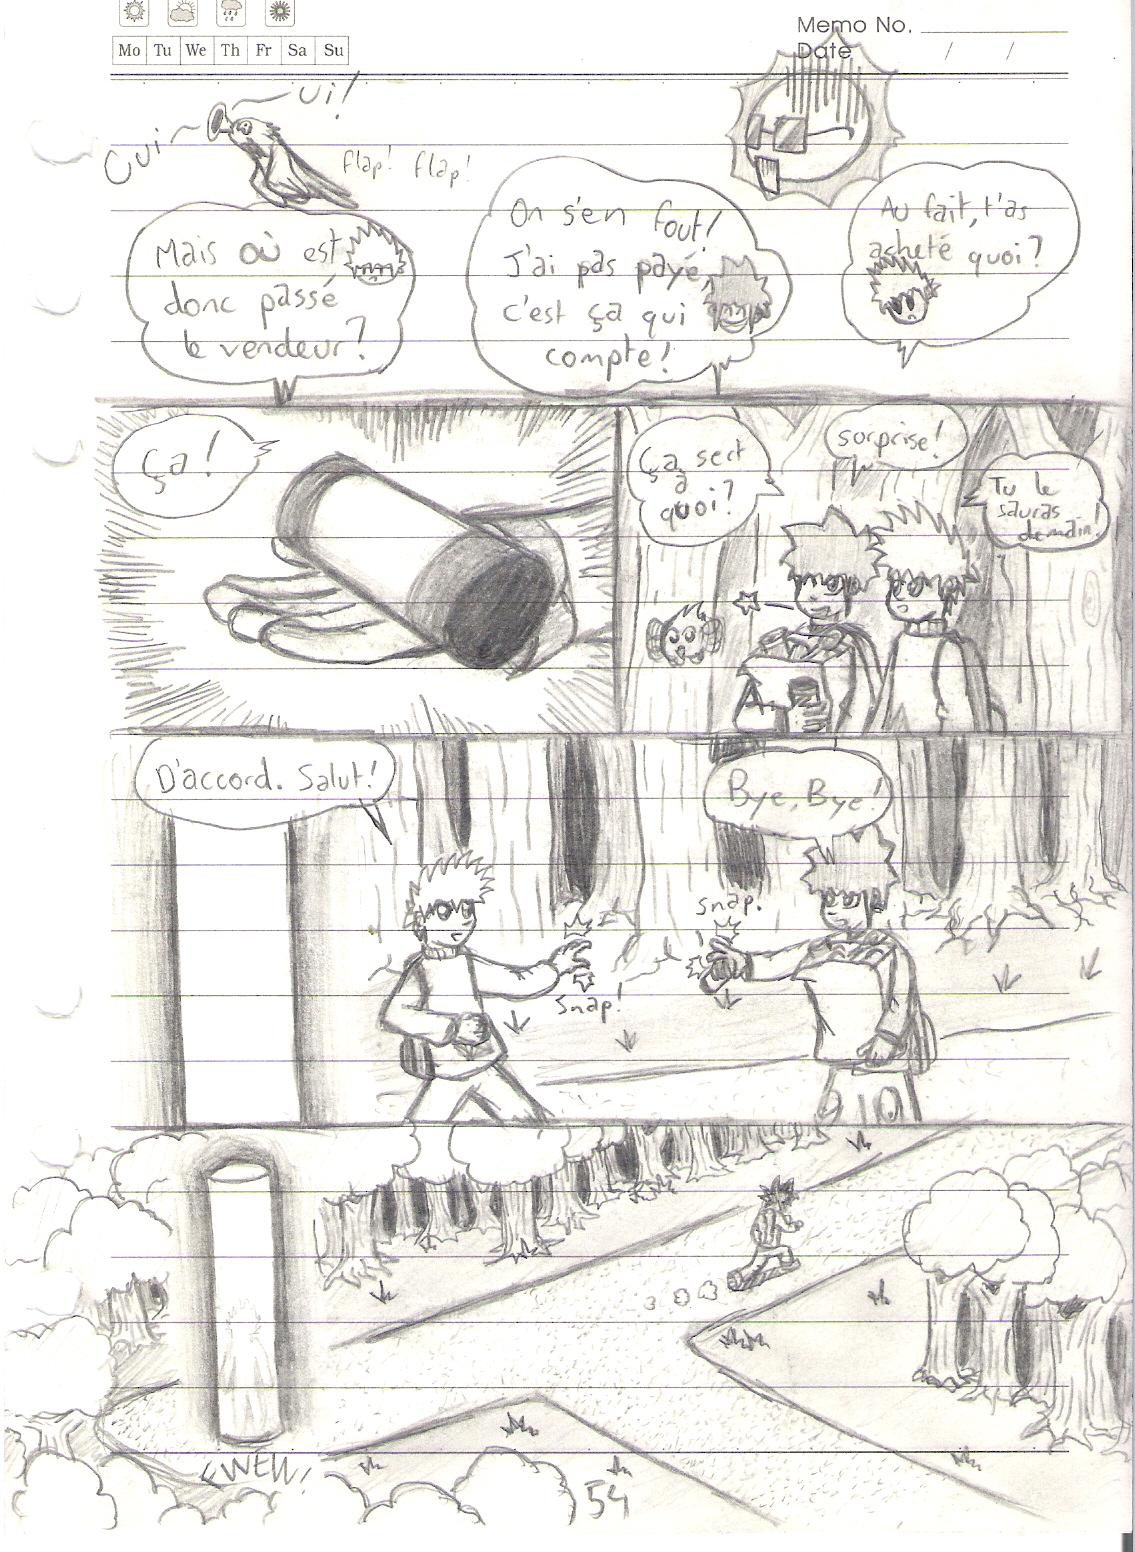 Memo No.
Mo Tu We Th Fr Sa Su
Date / /
Cui
ui!
flap! flap!
Mais où est
donc passé
le vendeur?
On s'en fout!
J'ai pas payé,
c'est ça qui
compte!
Au fait, t'as
acheté quoi?
Ça!
Ça sert
à
quoi?
surprise!
Tu le
sauras
demain!
D'accord. Salut!
Bye, Bye!
snap!
snap!
54